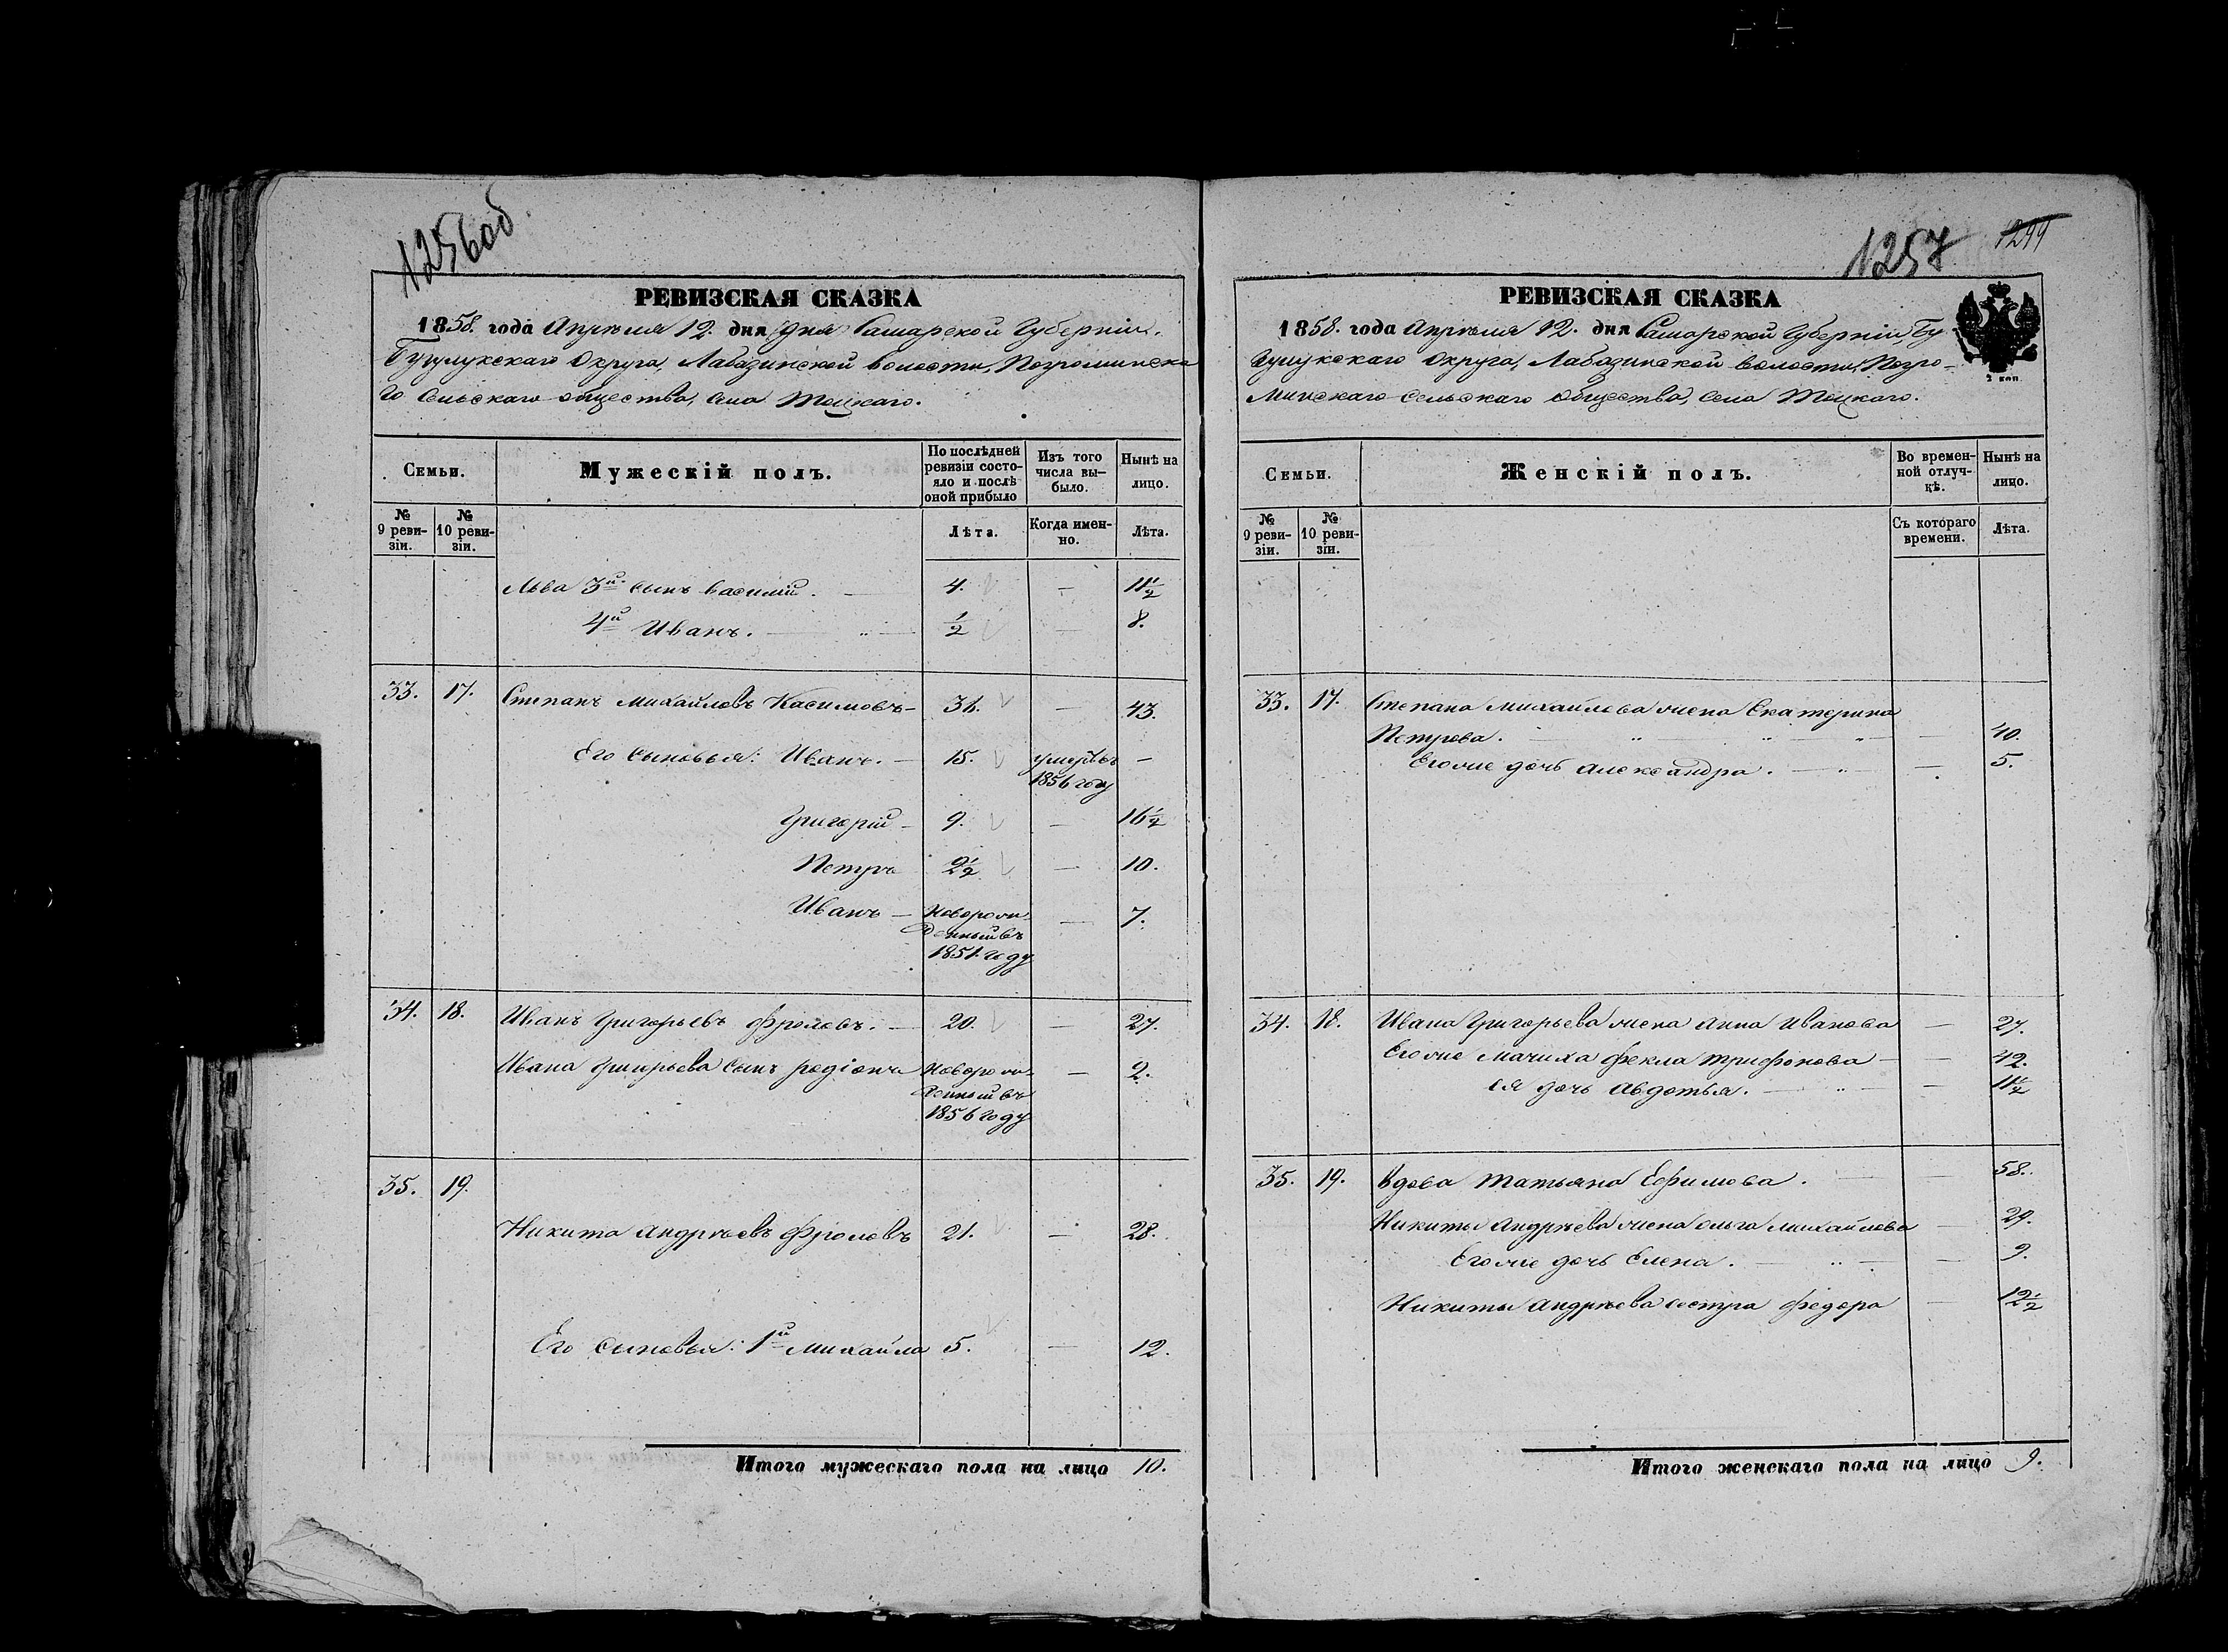 1256об
РЕВИЗСКАЯ СКАЗКА
1858. года Апреля 12. дня дня Самарской Губернiи.
Бузулукскаго Округа, Лабазинской волости, Погроминска
го Сельскаго общества, села Тоцкаго.
Семьи.
Мужескiй полъ.
По послѣдней ревизiи состо-
яло и послѣ
оной прибыло
Изъ того
числа вы-
было.
Нынѣ на
лицо.
№ 9 реви-
зiи.
№ 10 реви-
зiи.
Лѣта.
Когда имен-
но.
Лѣта.
Льва 3й сынъ василiй. — 4. — 11½
4й Иванъ. — ½ — 8.
33. 17. Степанъ Михайловъ Касимовъ — 36. — 43.
Его сыновья: Иванъ. — 15. умеръ въ —
1856 году
Григорiй — 9. — 16½
Петръ 2½ — 10.
Иванъ — Новорож- — 7.
денный въ
1851. году
34. 18. Иванъ Григорьевъ Фроловъ. — 20. — 27.
Ивана Григорьева сынъ родiонъ Новорож- — 2.
денный въ
1856 году
35. 19.
Никита Андреевъ Фроловъ 21. — 28.
Его сыновья: 1й Михайла 5. — 12.
Итого мужескаго пола на лицо 10.
1257 1299
РЕВИЗСКАЯ СКАЗКА
1858. года Апреля 12. дня Самарской Губернiи, Бу
зулукскаго Округа, Лабазинской волости, Погро-
минскаго сельскаго общества, села Тоцкаго.
2 коп.
Семьи.
Женскiй полъ.
Во времен-
ной отлуч-
кѣ.
Нынѣ на
лицо.
№ 9 реви-
зiи.
№ 10 реви-
зiи.
Съ котораго
времени.
Лѣта.
33. 17. Степана Михайлова жена Екатерина
Петрова. — 40.
Его же дочь александра. — 5.
34. 18. Ивана Григорьева жена анна иванова — 27.
Его же мачиха фекла трифонова — 42.
ея дочь авдотья. — 11½
35. 19. Вдова Татьяна Ефимова. — 58.
Никиты Андреева жена ольга михайлова — 29.
Его же дочь Елена. — 9.
Никиты Андреева сестра федора — 12½
Итого женскаго пола на лицо 9.